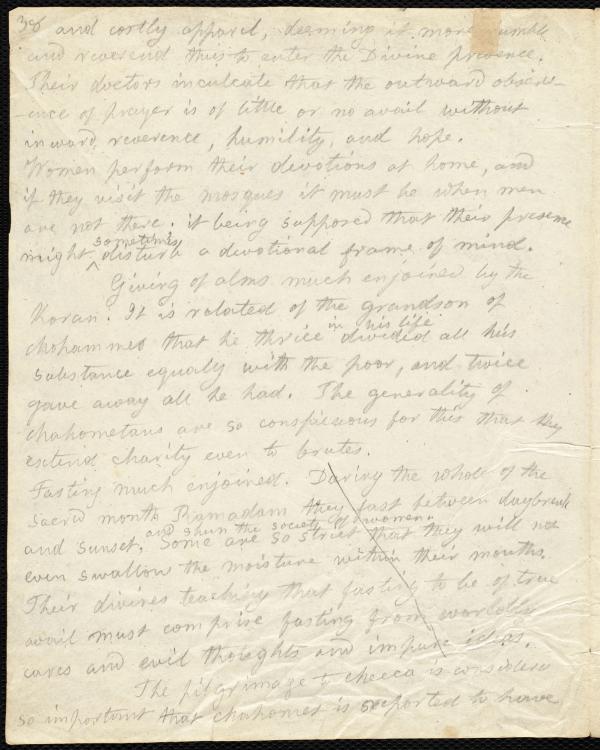 38 and costly apparel, deeming it more humble
and reverend this to enter the Divine presence.
Their doctors inculcate that the outward observ-
-ence of prayer is of little or no avail without
inward reverence, humility, and hope.
Women perform their devotions at home, and
if they visit the mosques it must be when men
are not there. it being supposed that their presence
might ^ sometimes disturb a devotional frame of mind.
Giving of alms much enjoined by the
Koran. It is related of the grandson of
Mohammed that he thrice in his life divided all his
substance equaly with the poor, and twice
gave away all he had. The generality of
Mahometans are so conspicuous for this that they
extend charity even to brutes.
Fasting much enjoined. During the whole of the
sacred month Ramadam they fast between daybreak
and sunset, and shun the society of women. Some are so strict that they will not
even swallow the moisture within their mouths.
Their divines teaching that fasting to be of true
avail must comprise fasting from worldly
cares and evil thoughts and impure ideas.
The pilgrimage to Mecca is considered
so important that Mahomet is reported to have